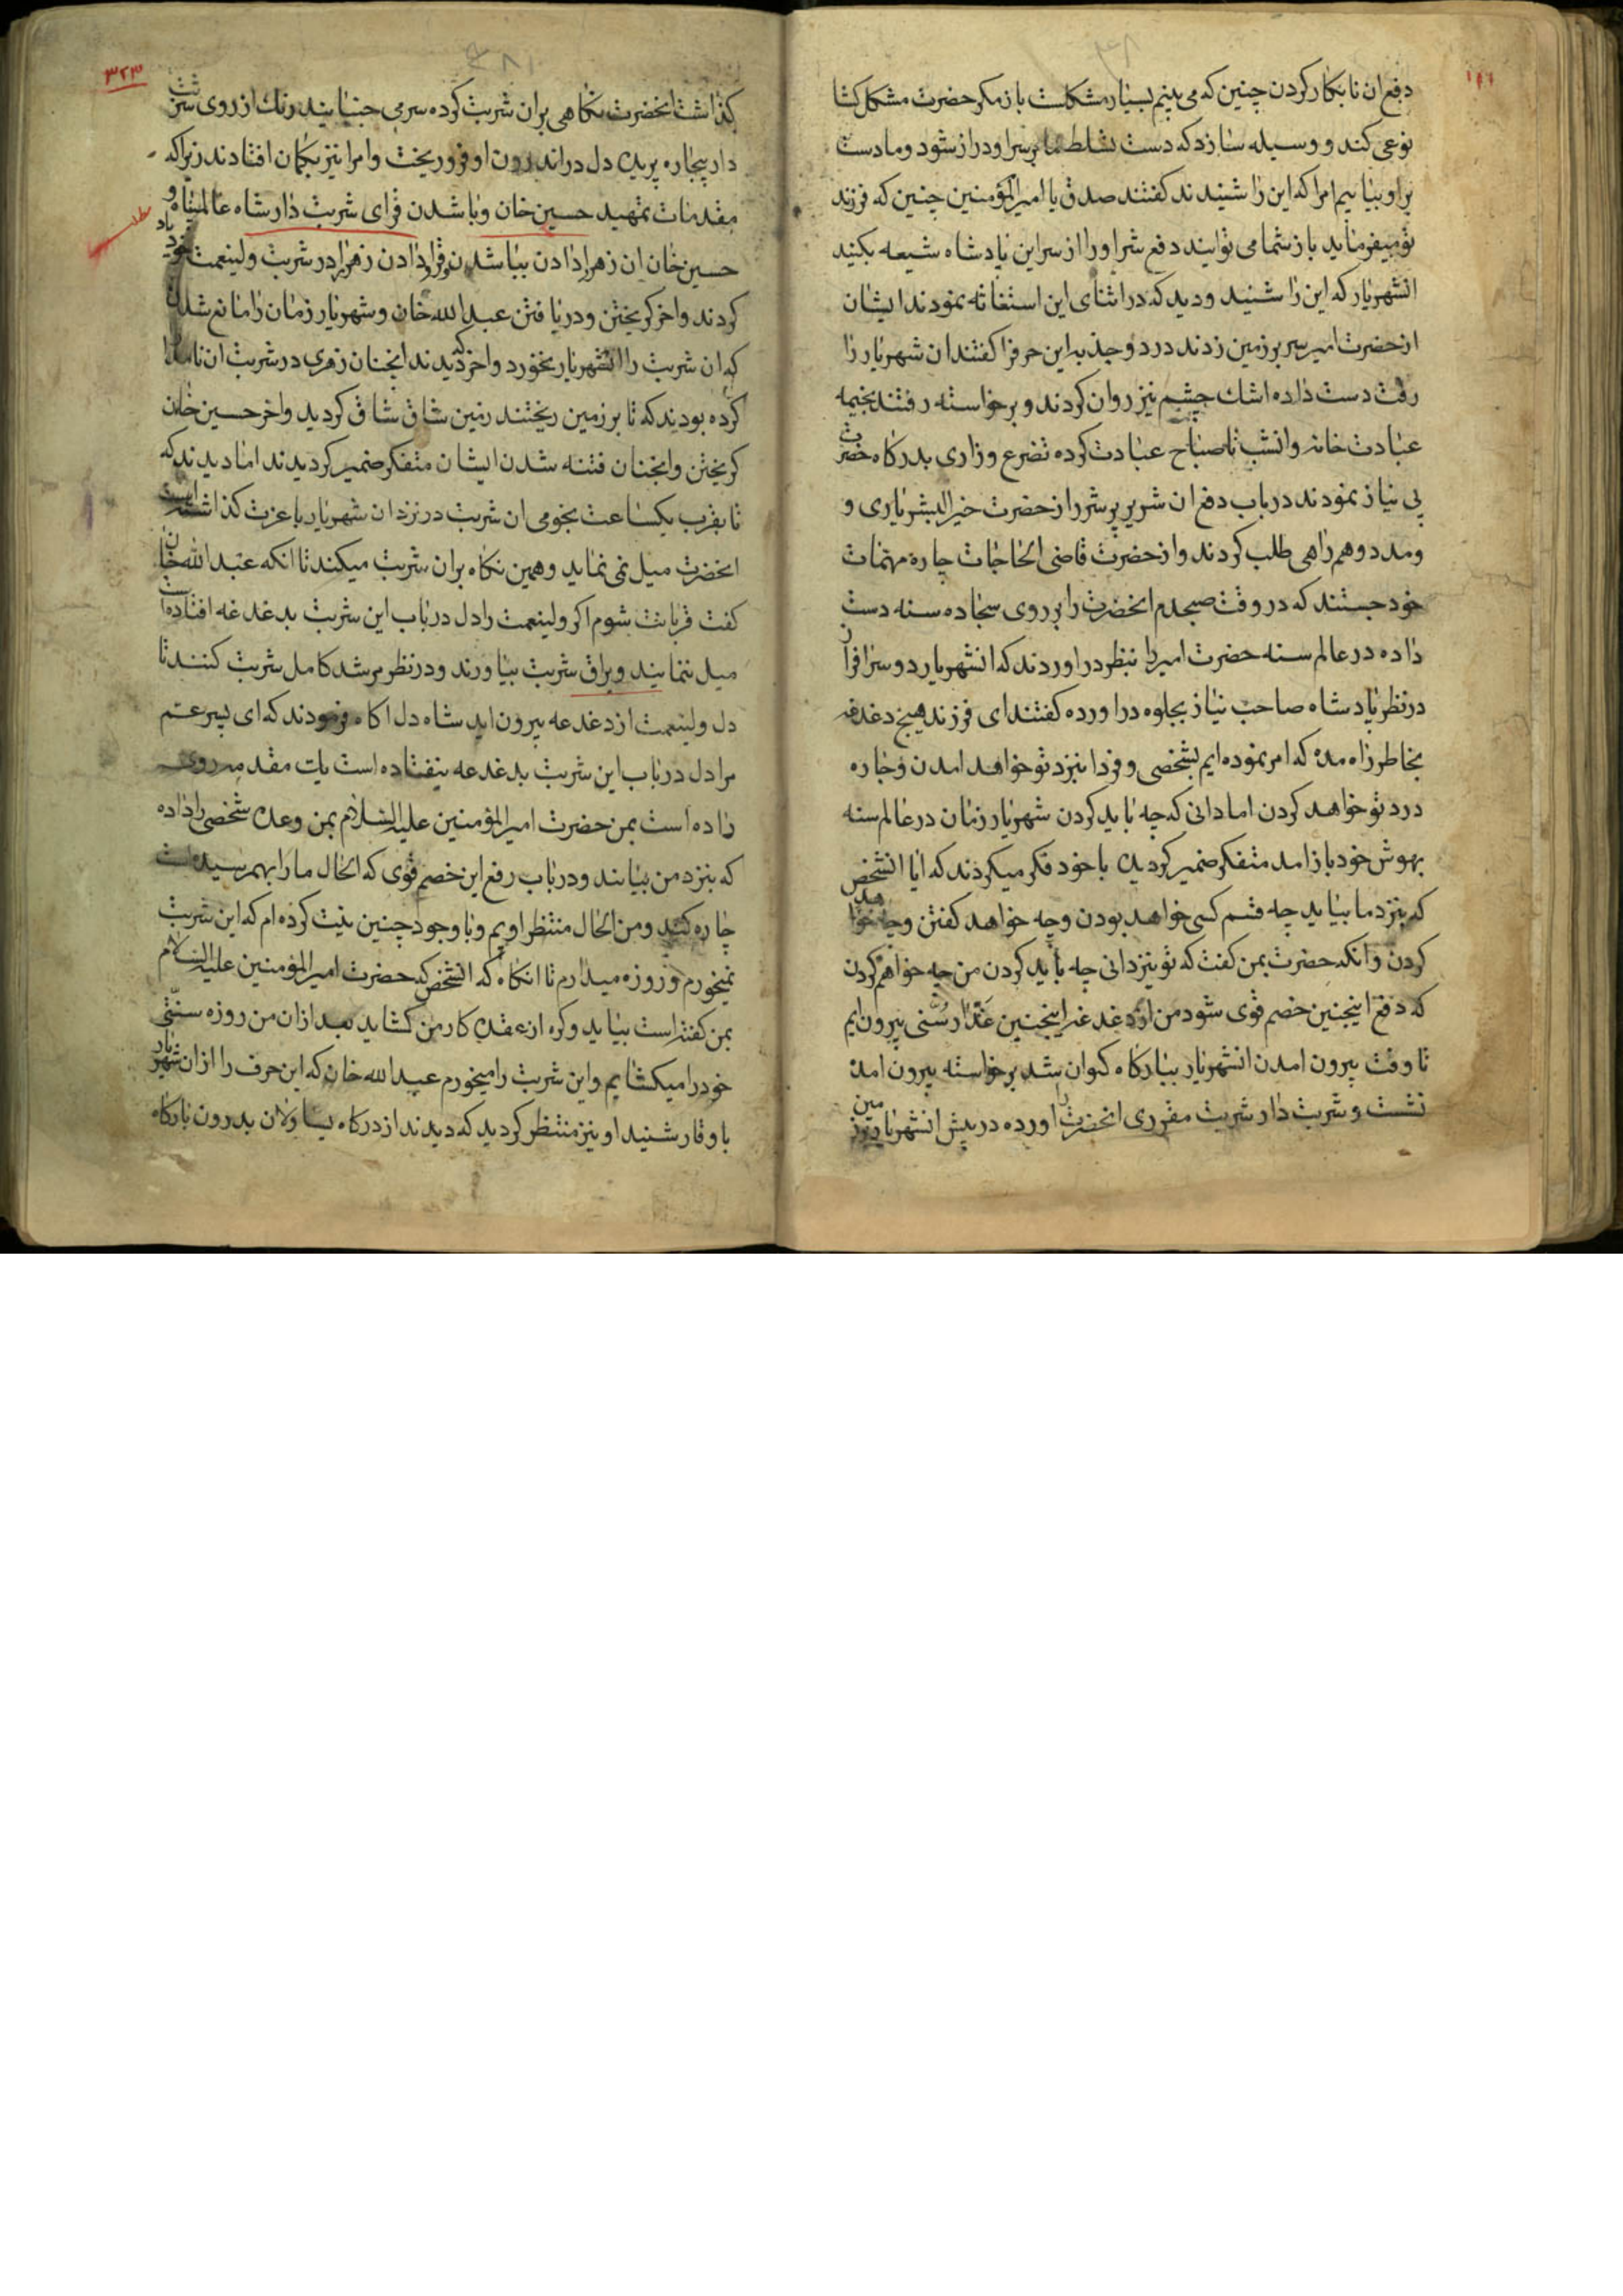 دفع ان نابکار کردن چنین که می بینم بسیار مشکلست باز مکر حضرت مشکل کشا
نوعی کند و وسیله سازد که دست تسلط ما بر سر او دراز شود و ما دست
بر او بیابیم امرا که این را شنیدند کفتند صدق یا امیرالمؤمنین چنین که فرزند
تو میفرماید باز شما می توانید دفع شر او را از سر این پادشاه شیعه بکنید
انشهریار که این را شنید و دید که در اثنای این استغاثه نمودند ایشان
از حضرت امیر سر بر زمین زدند درد و جذبه این حرفرا کفتند ان شهریار را
رقت دست داده اشك چشم نیز روان کردند و برخواسته رفتند بخیمه
عبادت خانه و انشب تا صباح عبادت کرده تضرع و زاری بدرکاه حضرت
بی نیاز نمودند در باب دفع ان شریر پر شر را از حضرت خیرالبشر یاری و
و مدد و همراهی طلب کردند و از حضرت قاضی الحاجات چاره مهمات
خود جستند که در وقت صبحدم انحضرت را بر روی سجاده سنه دست
داده در عالم سنه حضرت امیر را بنظر در اوردند که انشهریار دو سرا قرآن
در نظر پادشاه صاحب نیاز بجلوه در اورده کفتند ای فرزند هیچ دغدغه
بخاطر راه مده که امر نموده ایم بشخصی و فردا بنزد تو خواهد امدن و چاره
درد تو خواهد کردن اما دانی که چه باید کردن شهریار زمان در عالم سنه
بهوش خود باز امد متفکر ضمیر کردیده با خود فکر میکردند که ایا انشخص
که بنزد ما بیاید چه قسم کسی خواهد بودن و چه خواهد کفتن و چه خواهد
کردن و انکه حضرت بمن کفت که تو نیز دانی چه باید کردن من چه خواهم کردن
که دفع اینچنین خصم قوی شود من از دغدغه اینچنین غدّار سُنّی بیرون ایم
تا وقت بیرون امدن انشهریار ببارکاه کیوان شد برخواسته بیرون امده
نشست و شربت دار شربت مقرری انحضرت را اورده در پیش انشهریار بر زمین
۳۲۳
کذاشت انحضرت نکاهی بران شربت کرده سر می جنبانیند رنك از روی شربت
دار بیچاره پریده دل در اندرون او فرو ریخت و امرا نیز بکمان افتادند زیرا که
مقدمات تمهید حسین خان و با شدن قرای شربت دار شاه عالمپناه و
حسین خان ان زهر را دادن ببا شدن قرا و دادن زهر را در شربت ولینعمت خود
کردند و اخر کریختن و دریافتن عبدالله خان و شهریار زمان را مانع شدن
که ان شربت را انشهریار بخورد و اخر دیدند که انچنان زهری در شربت ان
کرده بودید که تا بر زمین ریختند زمین شاق شاق کردید و اخر حسین خان
کریختن و انچنان فتنه شدن ایشان متفکر ضمیر کردیدند اما دیدند که
تا بقرب یکساعت نجومی ان شربت در نزد ان شهریار با عزت کذاشته است
انحضرت میل نمی نماید و همین نکاه بران شربت میکند تا انکه عبدالله خان
کفت قربانت شوم اکر ولینعمت را دل در باب این شربت بدغدغه افتاده است
میل ننمایند و یراق شربت بیاورند و در نظر مرشد کامل شربت کنند تا
دل ولینعمت از دغدغه بیرون اید شاه دل اکاه فرمودند که ای پسر عم
مرا دل در باب این شربت بدغدغه نیفتاده است یك مقدمه روی
داده است بمن حضرت امیرالمؤمنین علیه السلام بمن وعده شخصی را داده
که بنزد من بیایند و در باب رفع این خصم قوی که الحال ما را بهم رسیده است
چاره کنند و من الحال منتظر اویم و با وجود چنین نیت کرده ام که این شربت
نمیخورم و روزه میدارم تا انکاه که انشخص که حضرت امیرالمؤمنین علیه السلام
بمن کفته است بیاید و کره از عقده کار من کشاید بعد ازان من روزه سنّتی
خود را میکشایم و این شربت را میخورم عبدالله خان که این حرف را ازان شهریار
با وقار شنید او نیز منتظر کردید که دیدند از درکاه یساولان بدرون بارکاه